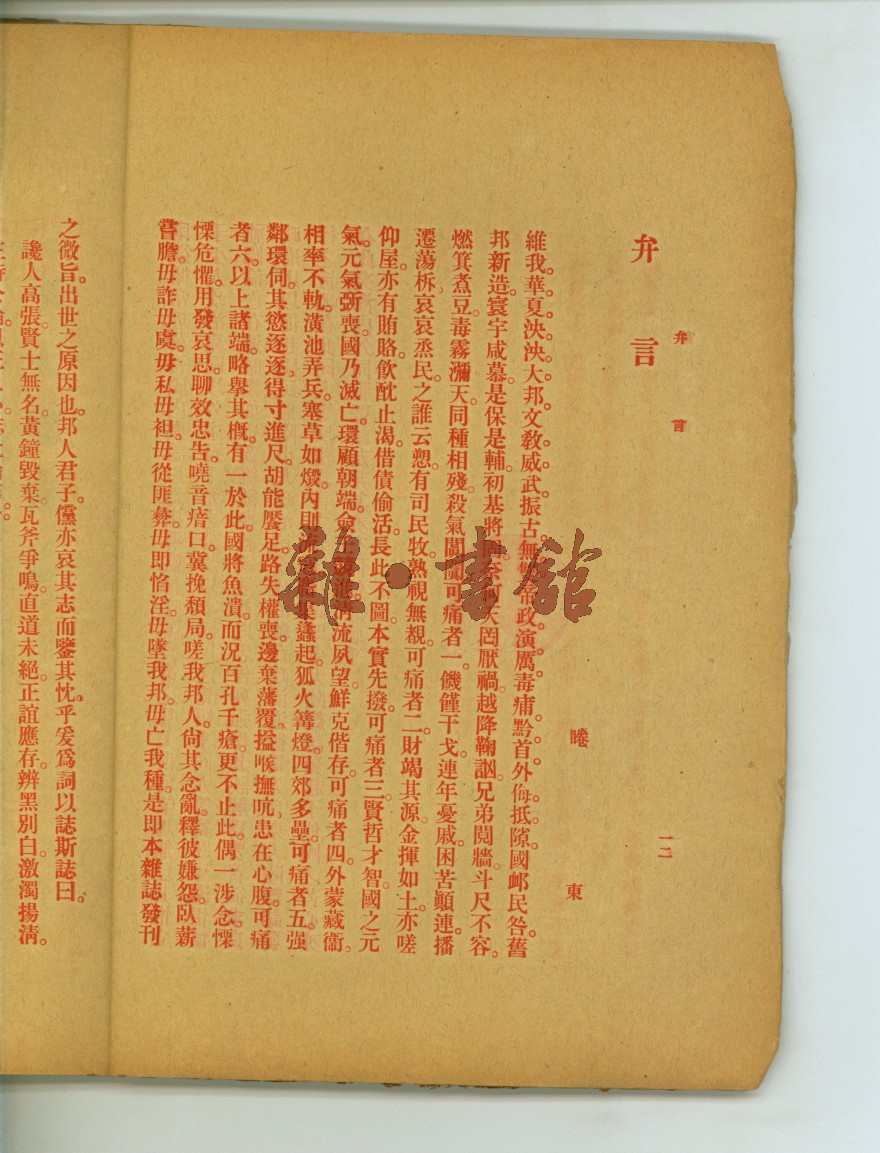 弁言
一二
弁言
睠東
維我華夏泱泱大邦。文敎威武。振古無。帝政演厲。毒痡黔首。外侮抵隙。國邮民咎。舊
邦新造。寰宇咸慕。是保是輔。初基將。天罔厭禍。越降鞠訩。兄弟鬩牆。斗尺不容。
燃箕煮豆。毒霧瀰天。同種相殘。殺氣。可痛者一。饑饉干戈。連年憂戚。困苦顚連。播
遷蕩柝。哀哀烝民。之誰云愬。有司民牧。熟視無覩。可痛者二。財竭其源。金揮如土。亦嗟
仰屋。亦有賄賂。飮酖止渴。借債偷活。長此不圖。本實先撥。可痛者三。賢哲才智。國之元
氣。元氣斲喪。國乃滅亡。環顧朝端。僉。淸流夙望。鮮克偕存。可痛者四。外蒙藏衞。
相率不軌。潢池弄兵。塞草如燬。內則。蠭起。狐火篝燈。四郊多壘。可痛者五。强
鄰環伺。其慾逐逐。得寸進尺。胡能饜足。路失權喪。邊棄藩覆。搤喉撫吭。患在心腹。可痛
者六。以上諸端。略舉其槪。有一於此。國將魚潰。而況百孔千瘡。更不止此。偶一涉念。慄
慄危懼。用發哀思。聊效忠告。嘵音瘖口。冀挽頹局。嗟我邦人。尙其念亂。釋彼嫌怨。臥薪
嘗膽。毋詐毋虞。毋私毋袒。毋從匪彝。毋卽慆淫。毋墜我邦。毋亡我種。是卽本雜誌發刊
之微旨。出世之原因也。邦人君子。儻亦哀其志而鑒其忱乎。爰爲詞以誌斯誌曰。
讒人高張。賢士無名。黃鐘毀棄。瓦斧爭鳴。直道未絕。正誼應存。辨黑別白。激濁揚淸。
雜·書館